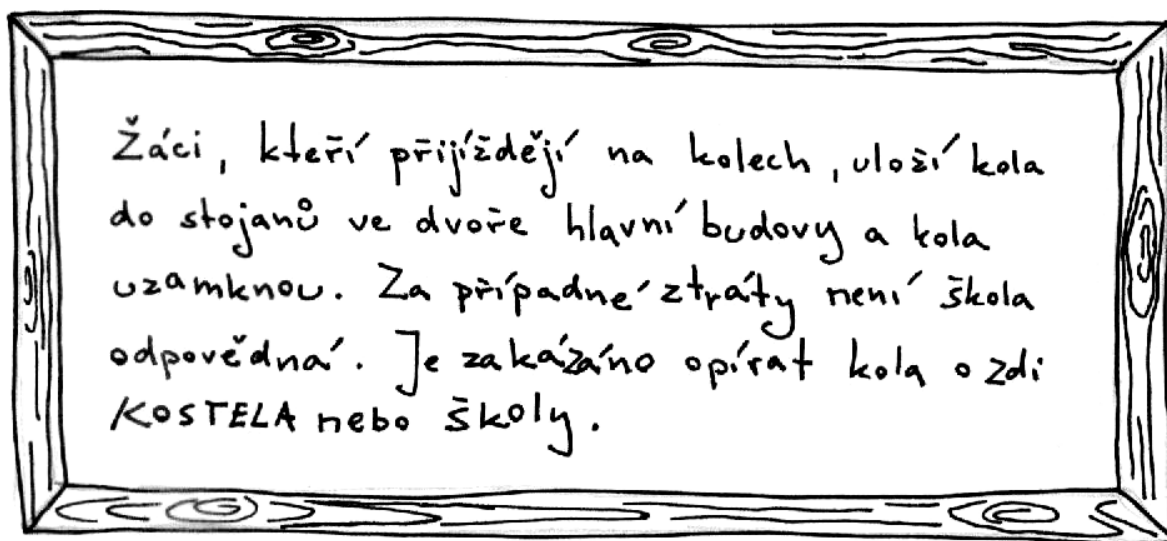 Žáci, kteří přijíždějí na kolech, uloží kola
do stojanů ve dvoře hlavní budovy a kola
uzamknou. Za případné ztráty není škola
odpovědná. Je zakázáno opírat kola o zdi
KOSTELA nebo školy.